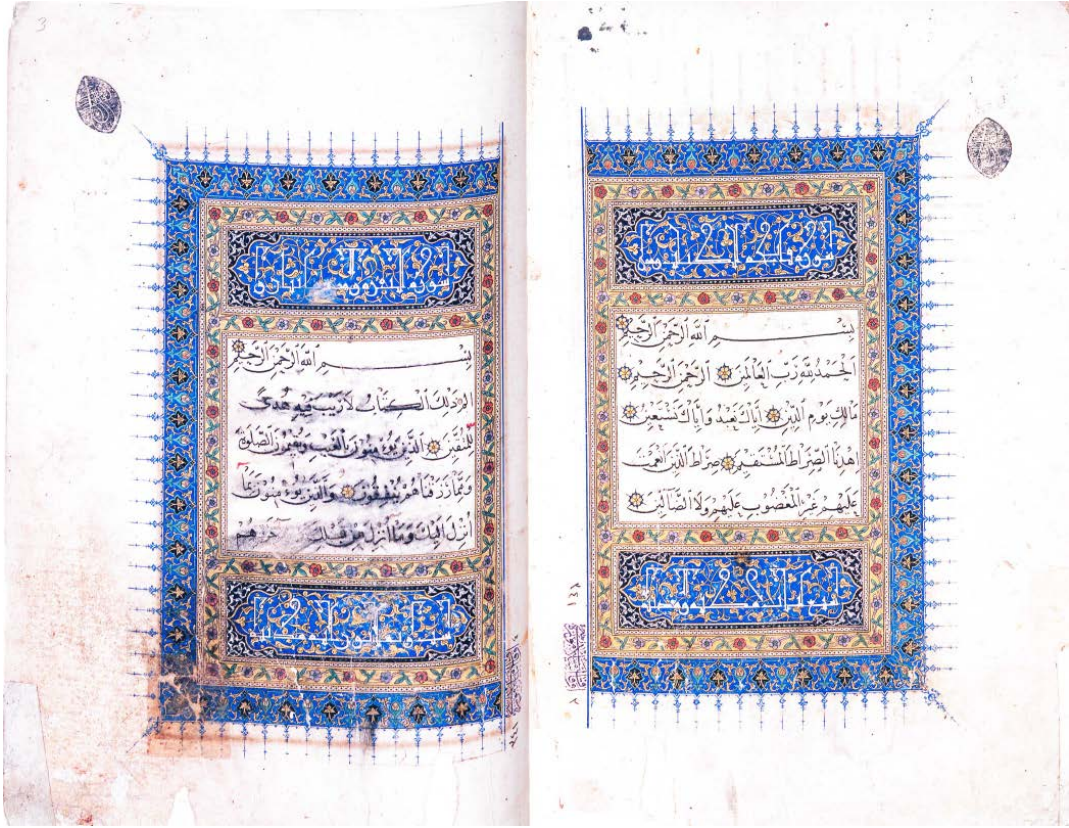 سورة فاتحة الكتاب
بسم الله الرحمن الرحيم
الحمد لله رب العالمين الرحمن الرحيم
مالك يوم الدين اياك نعبد واياك نستعين
اهدنا الصراط المستقيم صراط الذين انعمت
عليهم غير المغضوب عليهم ولا الضالين
3
سورة البقرة
بسم الله الرحمن الرحيم
الم ذلك الكتاب لا ريب فيه هدى
للمتقين الذين يؤمنون بالغيب ويقيمون الصلوة
ومما رزقناهم ينفقون والذين يؤمنون بما
انزل اليك وما انزل من قبلك هم